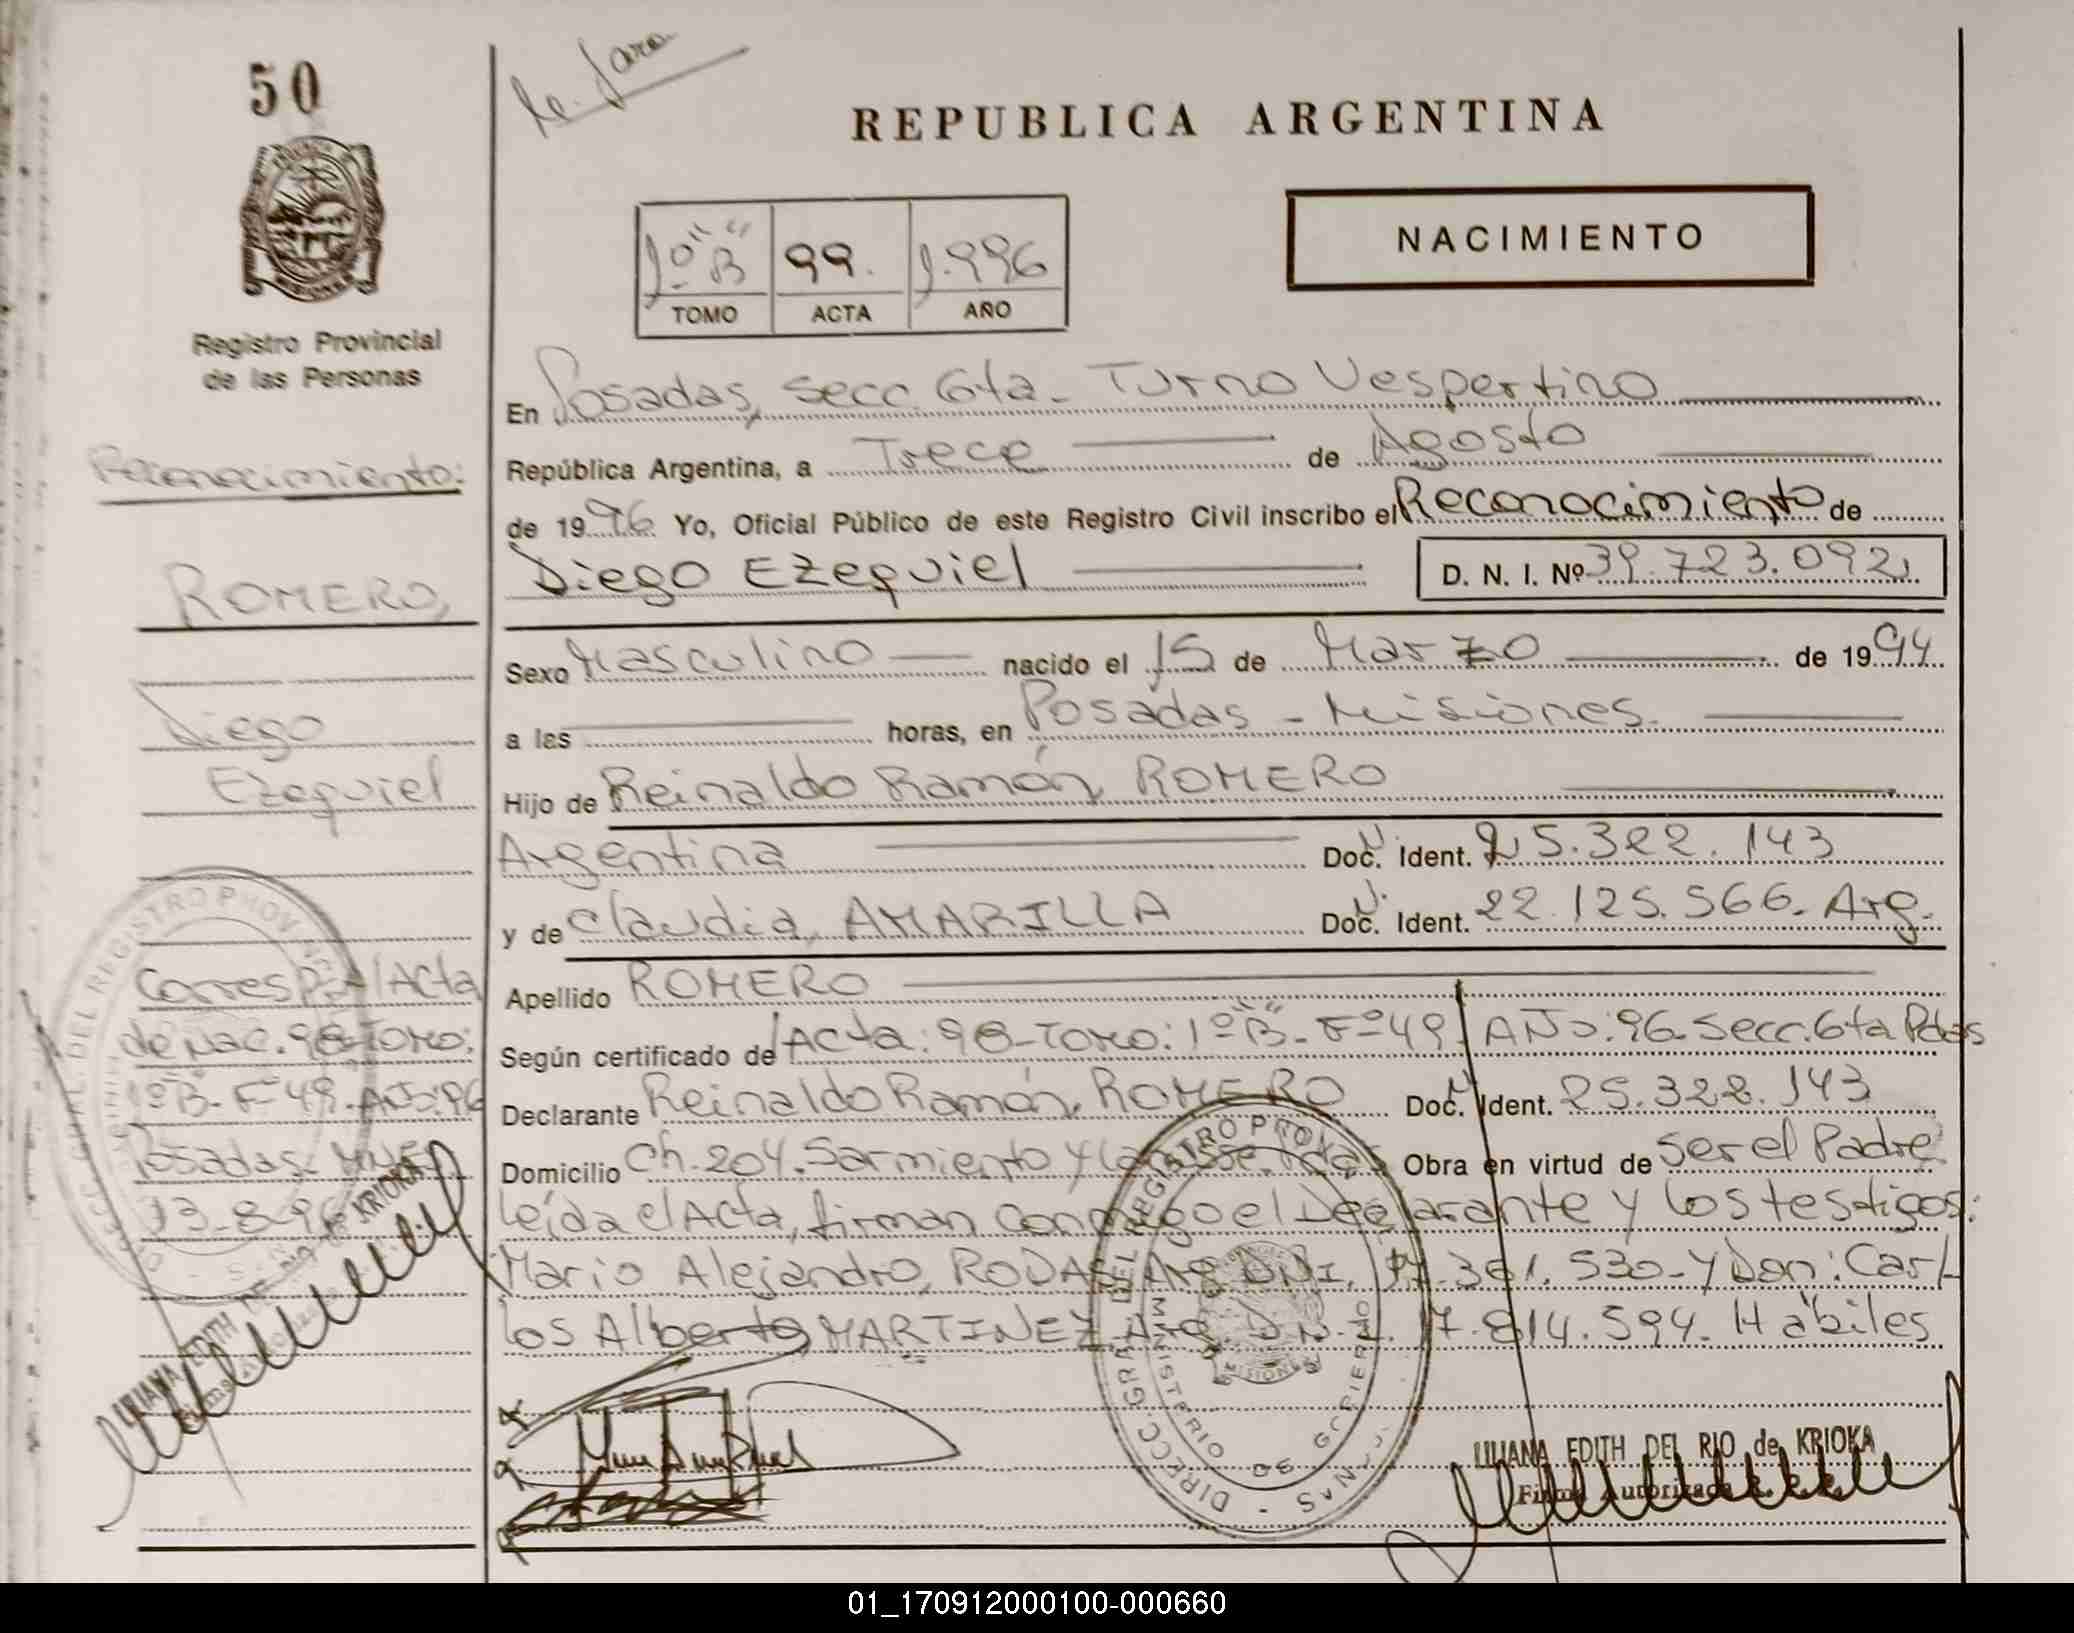 50
REPUBLICA ARGENTINA
NACIMIENTO
1º "B" 99. 1.996
TOMO ACTA AÑO
Registro Provincial
de las Personas
En Posadas, Secc. 6ta - Turno Vespertino
República Argentina, a Trece de Agosto
de 1996 Yo, Oficial Público de este Registro Civil inscribo el Reconocimiento de
Diego Ezequiel D. N. I. Nº 39.723.092
Sexo Masculino nacido el 15 de Marzo de 1994
a las horas, en Posadas - Misiones.
Hijo de Reinaldo Ramón, ROMERO
Argentina Doc. Ident. 25.322.143
y de Claudia, AMARILLA Doc. Ident. 22.125.566. Arg.
Apellido ROMERO
Según certificado de Acta: 98-Tomo: 1º "B"- Fº 49 AÑo: 96. Secc. 6ta Pdas
Declarante Reinaldo Ramón, ROMERO Doc. Ident. 25.322.143
Domicilio Ch. 204. Sarmiento y Obra en virtud de ser el Padre
Leída el Acta, firman conmigo el Declarante y los testigos:
Mario Alejandro, RODAS Arg. DNI. 530- y Don: Car-
los Alberto, MARTINEZ Arg. D.N.I. 17.814.594. Hábiles
LILIANA EDITH DEL RIO de KRIOKA
Firma Autorizada
Reconocimiento:
ROMERO,
Diego
Ezequiel
Corresp. al Acta
de Nac. 98-Tomo:
1º "B"- Fº 49. AÑo: 96
Posadas. Mnes
13-8-96
LILIANA EDITH DEL RIO de KRIOKA
DIRECC. GRAL. DEL REGISTRO PROV
MINISTERIO DE GOBIERNO
MISIONES
01_170912000100-000660